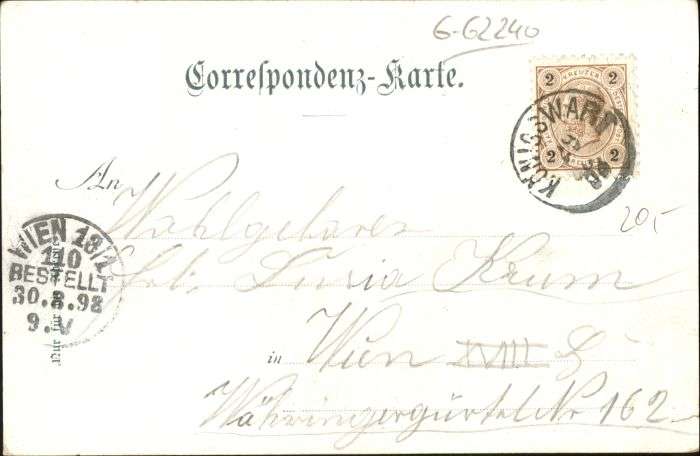 6-62240
Correspondenz-Karte.
2 KREUZER 2
2 KREUZER 2
KÖNIGSWART
98
20,-
An
Wohlgeboren
WIEN 18/1
110
BESTELLT
30.8.98
9.V
Frl. Luzia Krum
in Wien XVIII
Währingergürtel Nr 162
Nur für die